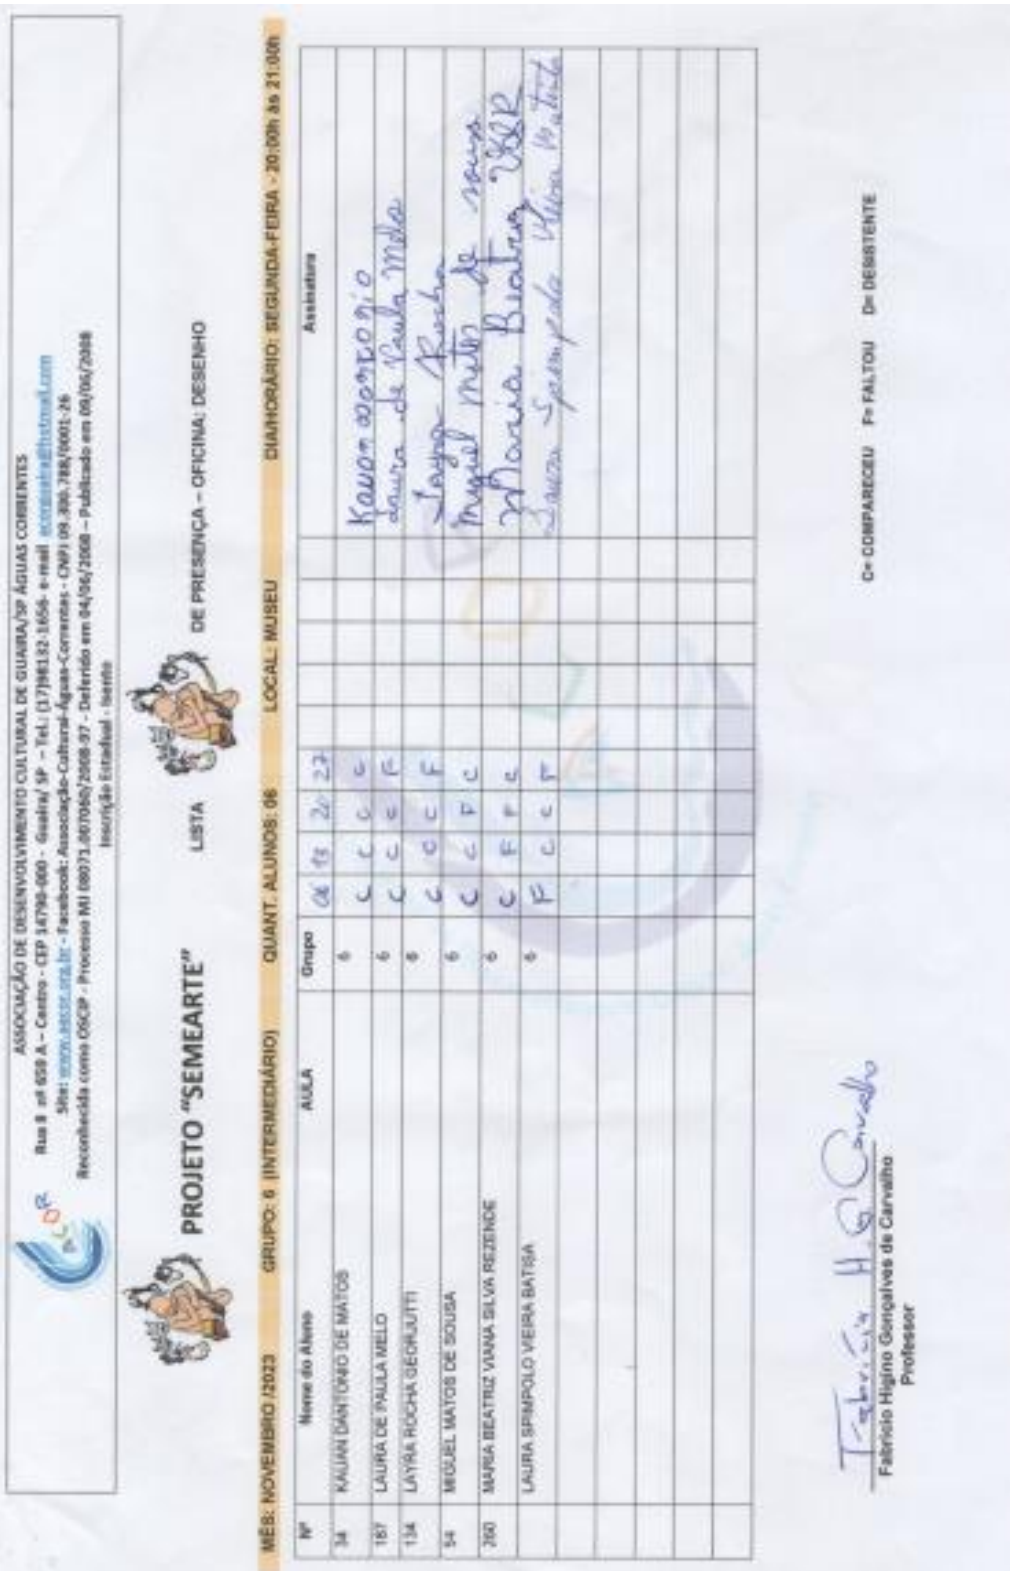 ASSOCIAÇÃO DE DESENVOLVIMENTO CULTURAL DE GUAIRA/SP ÁGUAS CORRENTES
Rua 8 nº 659 A – Centro - CEP 14790-000 - Guaira/ SP – Tel.: (17)98132-1656- e-mail
Site: www.aecor.org.br - Facebook: Associação-Cultural-Águas-Correntes - CNPJ 09.300.788/0001-26
Reconhecida como OSCIP - Processo MJ 08071.007060/2008-97 - Deferido em 04/06/2008 – Publicado em 09/06/2008
Inscrição Estadual - Isento
PROJETO "SEMEARTE" LISTA DE PRESENÇA – OFICINA: DESENHO
MÊS: NOVEMBRO /2023 GRUPO: 6 (INTERMEDIÁRIO) QUANT. ALUNOS: 06 LOCAL: MUSEU DIA/HORÁRIO: SEGUNDA-FEIRA - 20:00h às 21:00h
Nº Nome do Aluno AULA Grupo 06 13 20 27 Assinatura
34 KAUAN DANTONIO DE MATOS 6 C C C C
187 LAURA DE PAULA MELO 6 C C C F Laura de Paula Melo
134 LAYRA ROCHA GEORJUTTI 6 C C C F Layra Rocha
54 MIGUEL MATOS DE SOUSA 6 C C F C Miguel matos de sousa
260 MARIA BEATRIZ VIANA SILVA REZENDE 6 C F F C Maria Beatriz VSR
LAURA SPIMPOLO VIEIRA BATISA 6 F C C F Laura Spimpolo Vieira
C= COMPARECEU F= FALTOU D= DESISTENTE
Fabrício H. G. Carvalho
Fabrício Higino Gonçalves de Carvalho
Professor